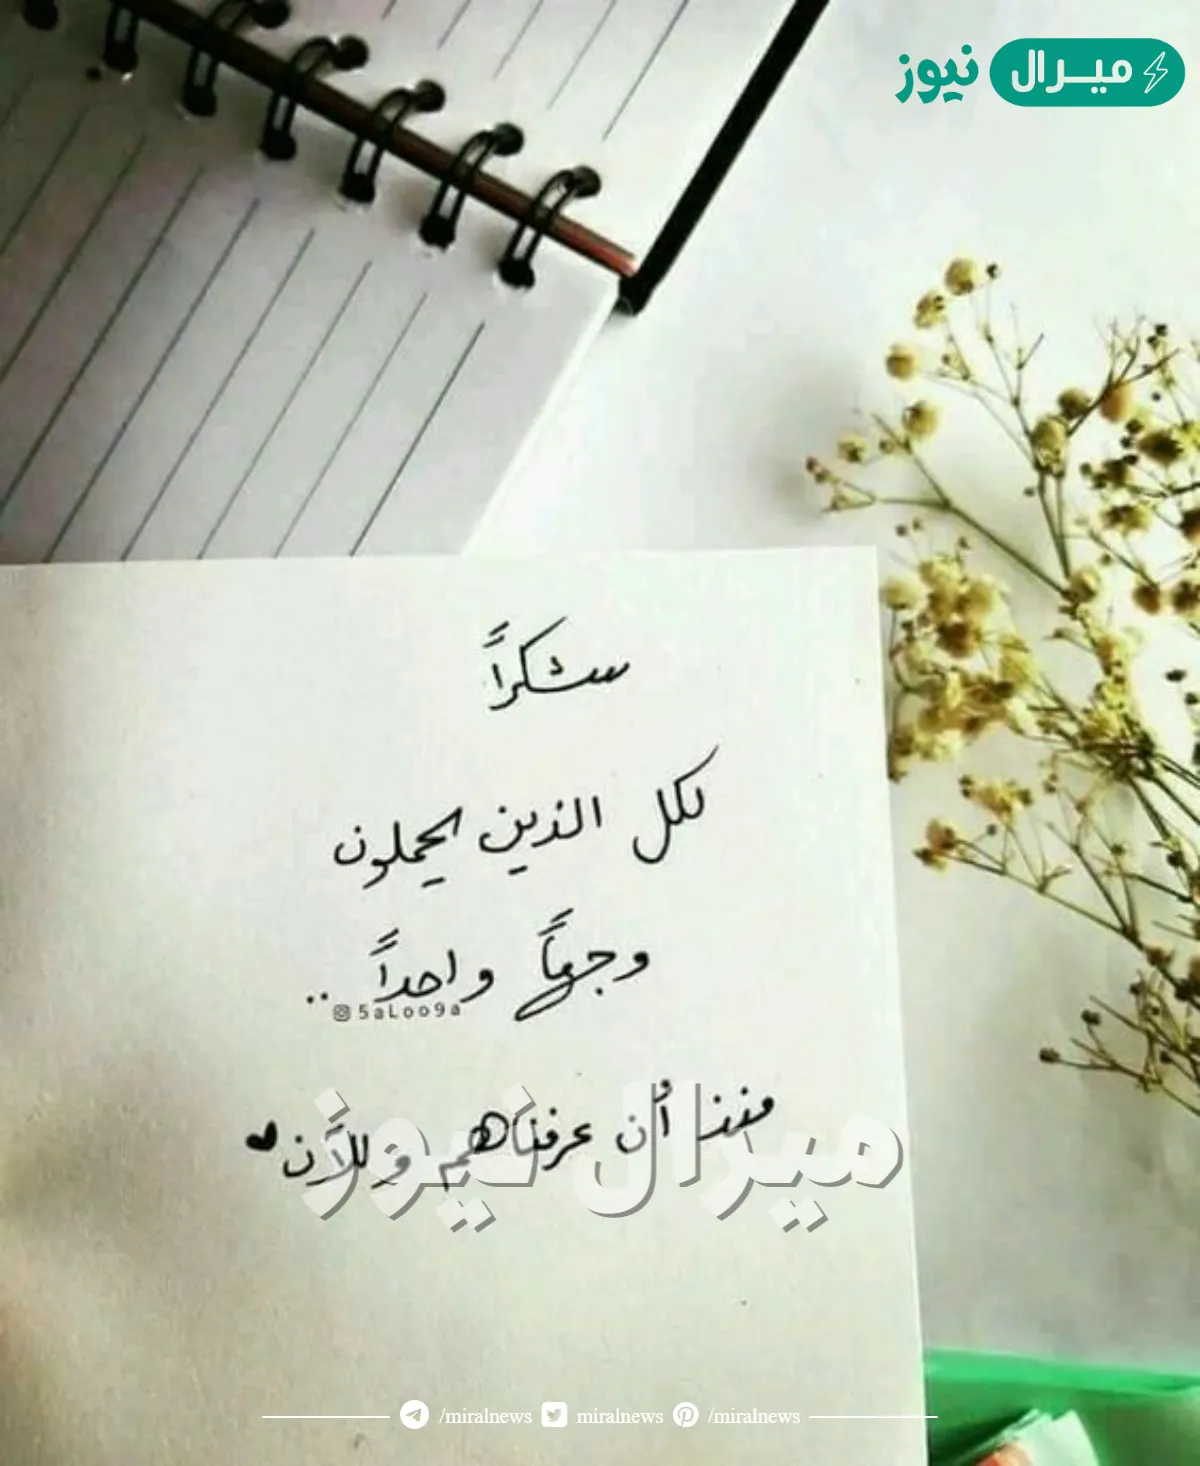 ميرال نيوز
شكراً
لكل الذين يحملون
وجهاً واحداً ..
5aLoo9a
منذ أن عرفناهم وللآن
ميرال نيوز
/miralnews miralnews /miralnews